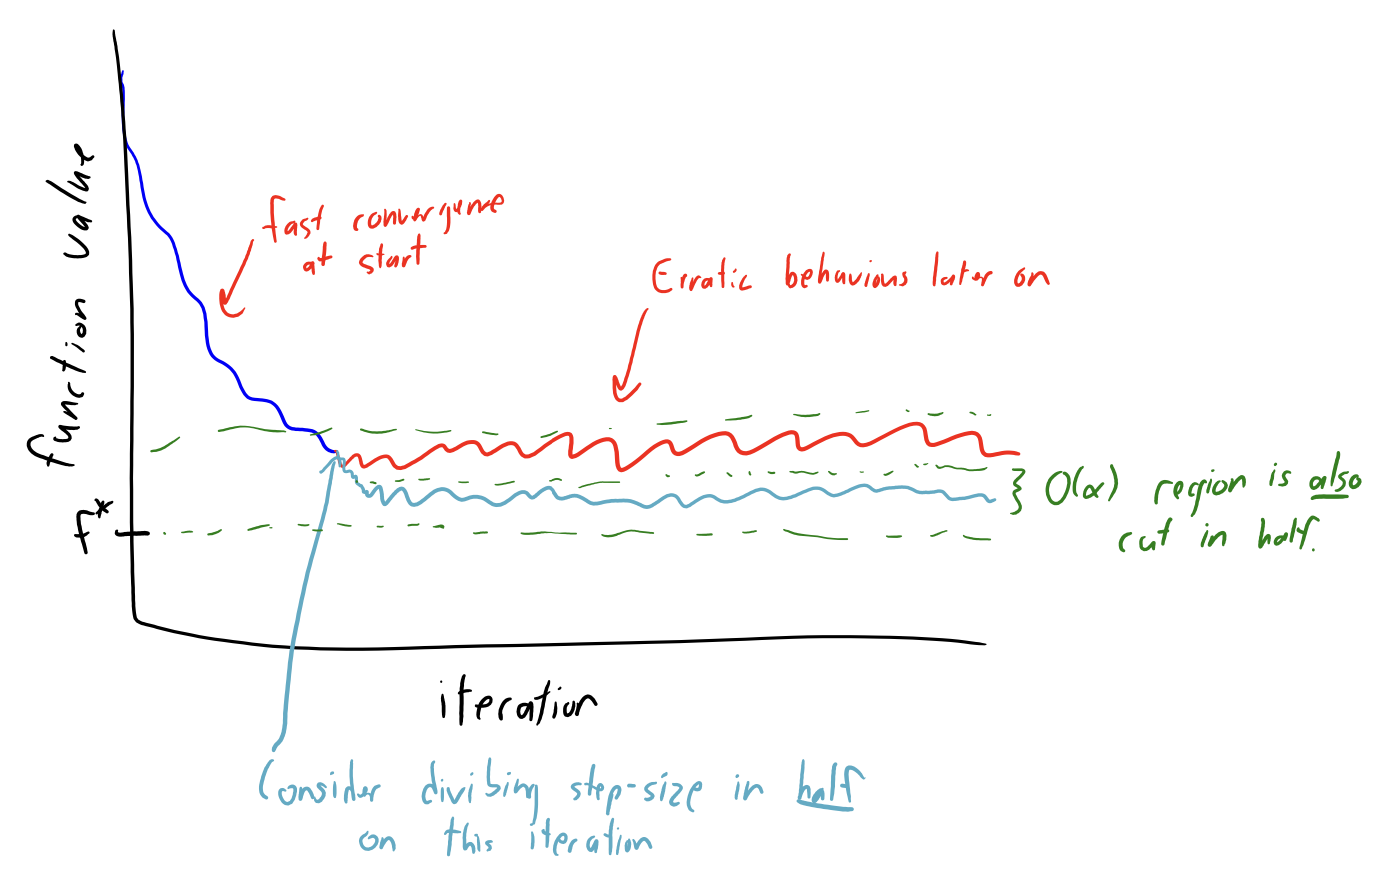 function value
fast convergence
at start
Erratic behaviour later on
f*
O(α) region is also
cut in half.
iteration
Consider dividing step-size in half
on this iteration